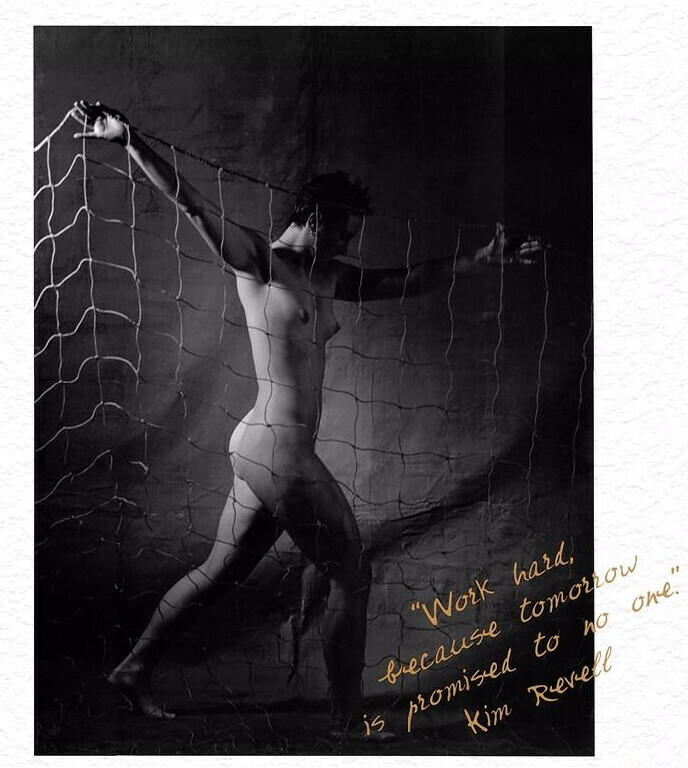 "Work hard,
because tomorrow
is promised to no one."
Kim Revell